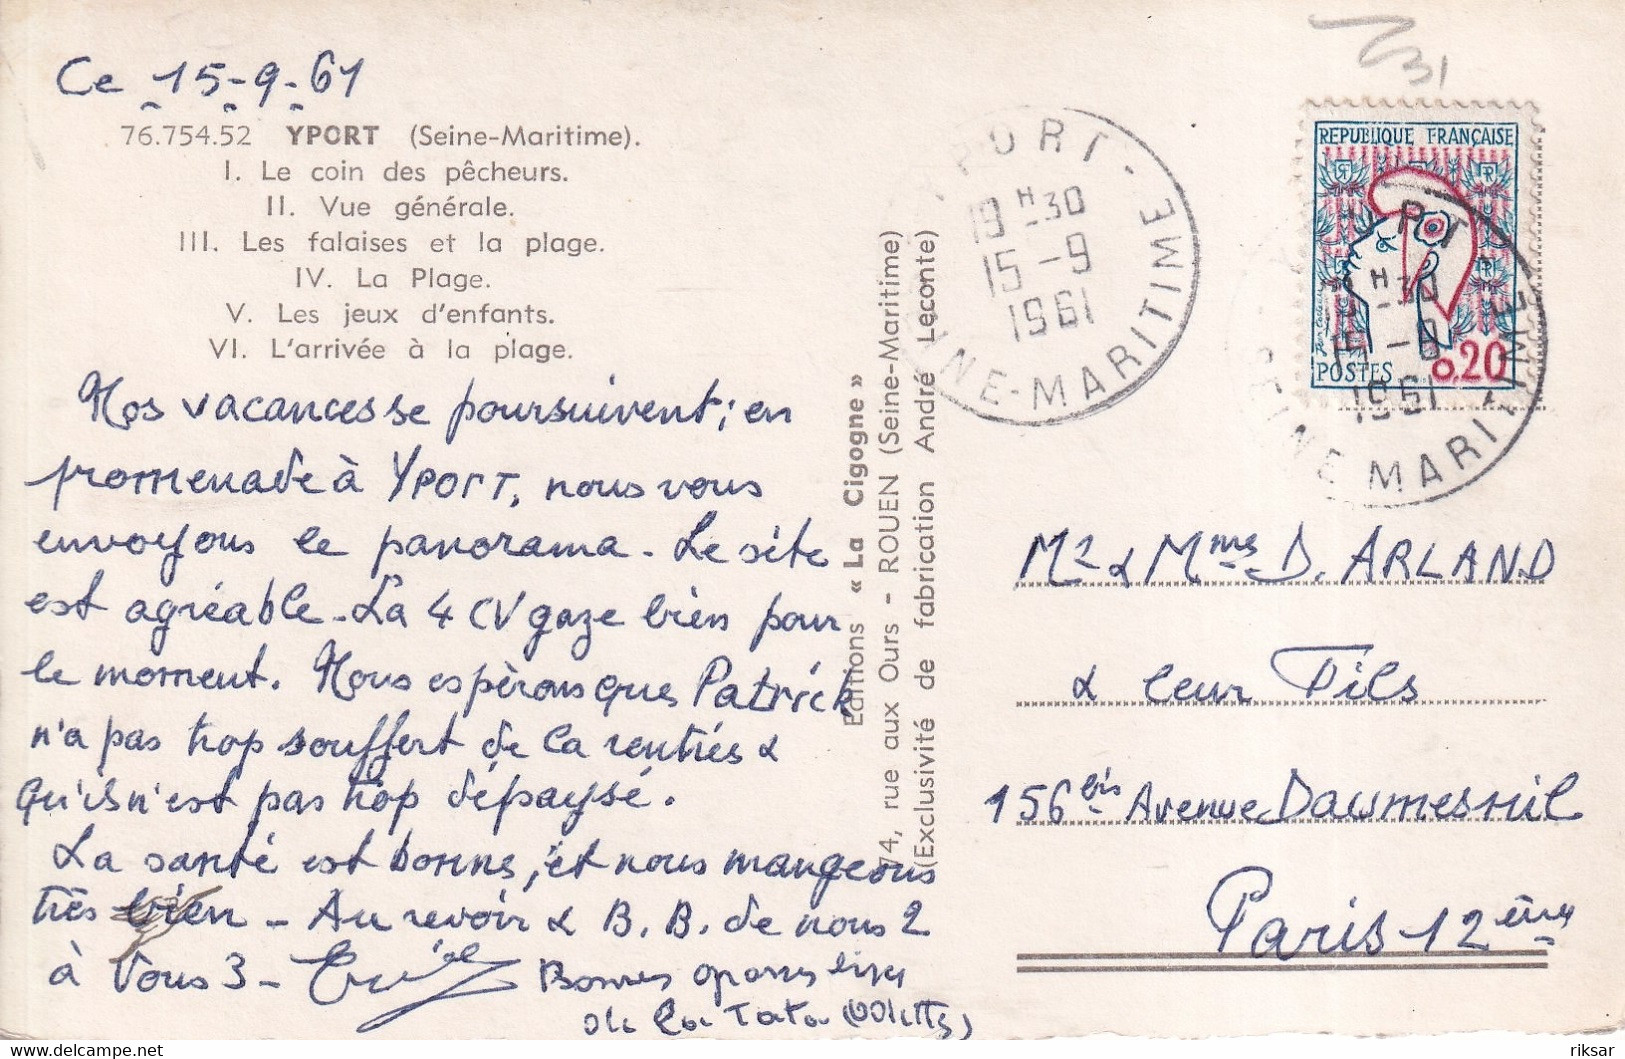 Ce 15-9-61
76.754.52 YPORT (Seine-Maritime).
I. Le coin des pêcheurs.
II. Vue générale.
III. Les falaises et la plage.
IV. La Plage.
V. Les jeux d'enfants.
VI. L'arrivée à la plage.
Nos vacances se poursuivent; en
promenade à YPORT, nous vous
envoyons le panorama - Le site
est agréable - La 4 CV gaze bien pour
le moment. Nous espérons que Patrick
n'a pas trop souffert de la rentrée &
qu'il n'est pas trop dépaysé.
La santé est bonne, et nous mangeons
très bien - Au revoir & B.B. de nous 2
à Vous 3 -
Bonnes grosses bises
de la Tata
Editions « La Cigogne »
74, rue aux Ours - ROUEN (Seine-Maritime)
(Exclusivité de fabrication André Leconte)
YPORT
19 H 30
15 - 9
1961
SEINE-MARITIME
REPUBLIQUE FRANÇAISE
POSTES 0.20
H 30
15 - 9
1961
SEINE MARITIME
31
Mr & Mme D. ARLAND
& leur Fils
156 bis Avenue Daumesnil
Paris 12 ème
riksar